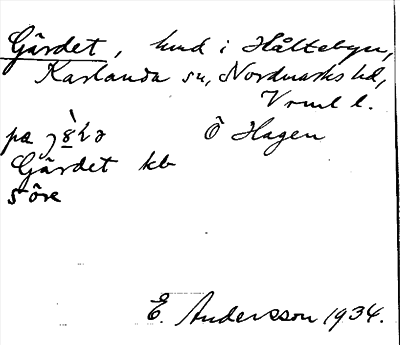 Gärdet, hmd i Håltebyn,
Karlanda sn, Nordmarks hd,
Vrml l.
pa Ö Hagen
Gärdet kb
5 öre
E. Andersson 1934.